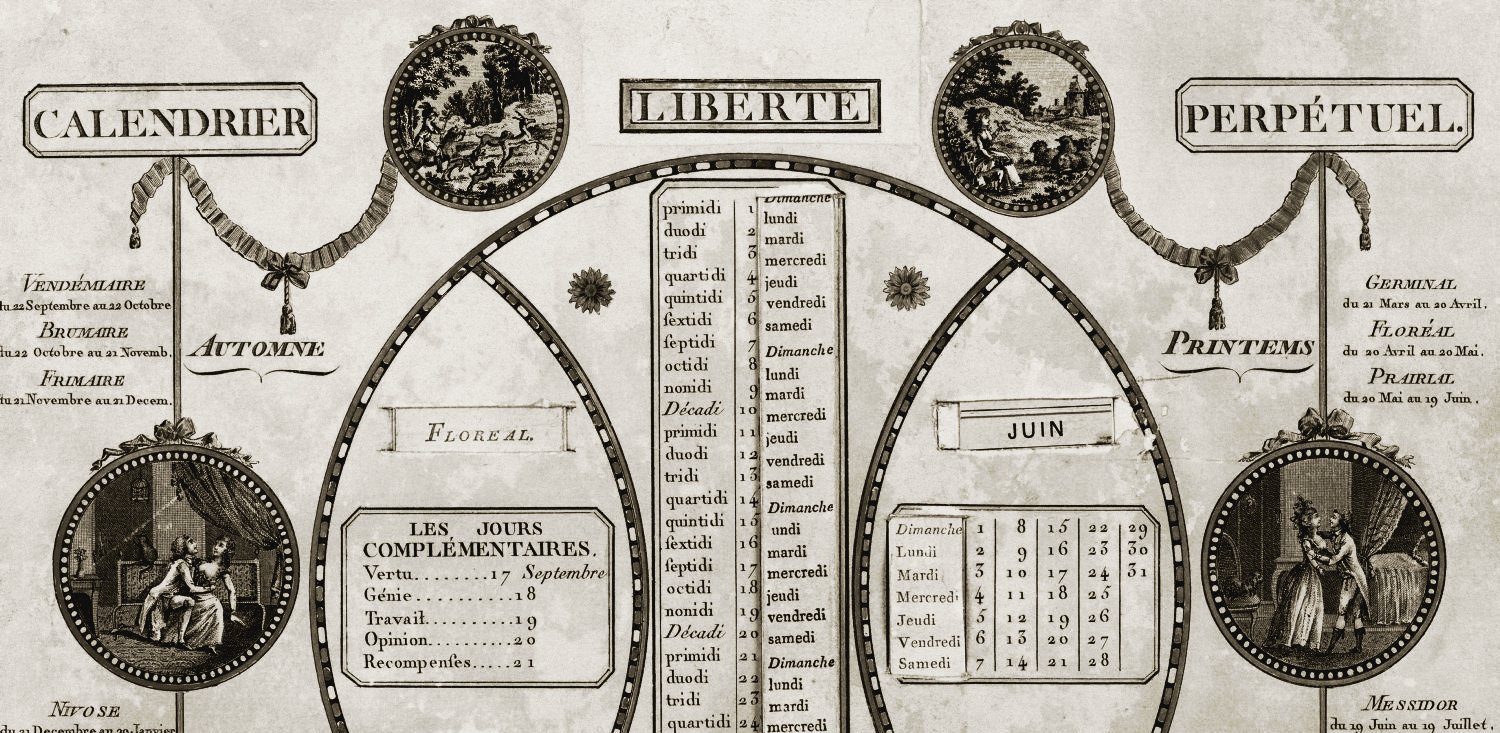 CALENDRIER
LIBERTE
PERPÉTUEL.
VENDÉMIAIRE
du 22 Septembre au 22 Octobre
BRUMAIRE
du 22 Octobre au 21 Novemb.
FRIMAIRE
du 21 Novembre au 21 Decem.
AUTOMNE
NIVOSE
du 21 Decembre au 20 Janvier
FLOREAL.
LES JOURS
COMPLÉMENTAIRES.
Vertu........17 Septembre
Génie..........18
Travail..........19
Opinion..........20
Recompenſes.....21
primidi 1 Dimanche
duodi 2 lundi
tridi 3 mardi
quartidi 4 mercredi
quintidi 5 jeudi
ſextidi 6 vendredi
ſeptidi 7 samedi
octidi 8 Dimanche
nonidi 9 lundi
Décadi 10 mardi
primidi 11 mercredi
duodi 12 jeudi
tridi 13 vendredi
quartidi 14 samedi
quintidi 15 Dimanche
ſextidi 16 undi
ſeptidi 17 mardi
octidi 18 mercredi
nonidi 19 jeudi
Décadi 20 vendredi
primidi 21 samedi
duodi 22 Dimanche
tridi 23 lundi
quartidi 24 mardi
mercredi
JUIN
Dimanche 1 8 15 22 29
Lundi 2 9 16 23 30
Mardi 3 10 17 24 31
Mercredi 4 11 18 25
Jeudi 5 12 19 26
Vendredi 6 13 20 27
Samedi 7 14 21 28
PRINTEMS
GERMINAL
du 21 Mars au 20 Avril.
FLORÉAL
du 20 Avril au 20 Mai.
PRAIRIAL
du 20 Mai au 19 Juin.
MESSIDOR
du 19 Juin au 19 Juillet.